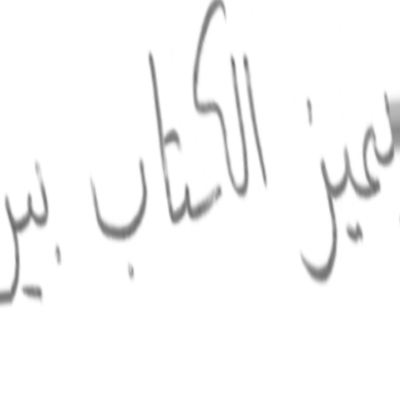 يميز الكتاب بين